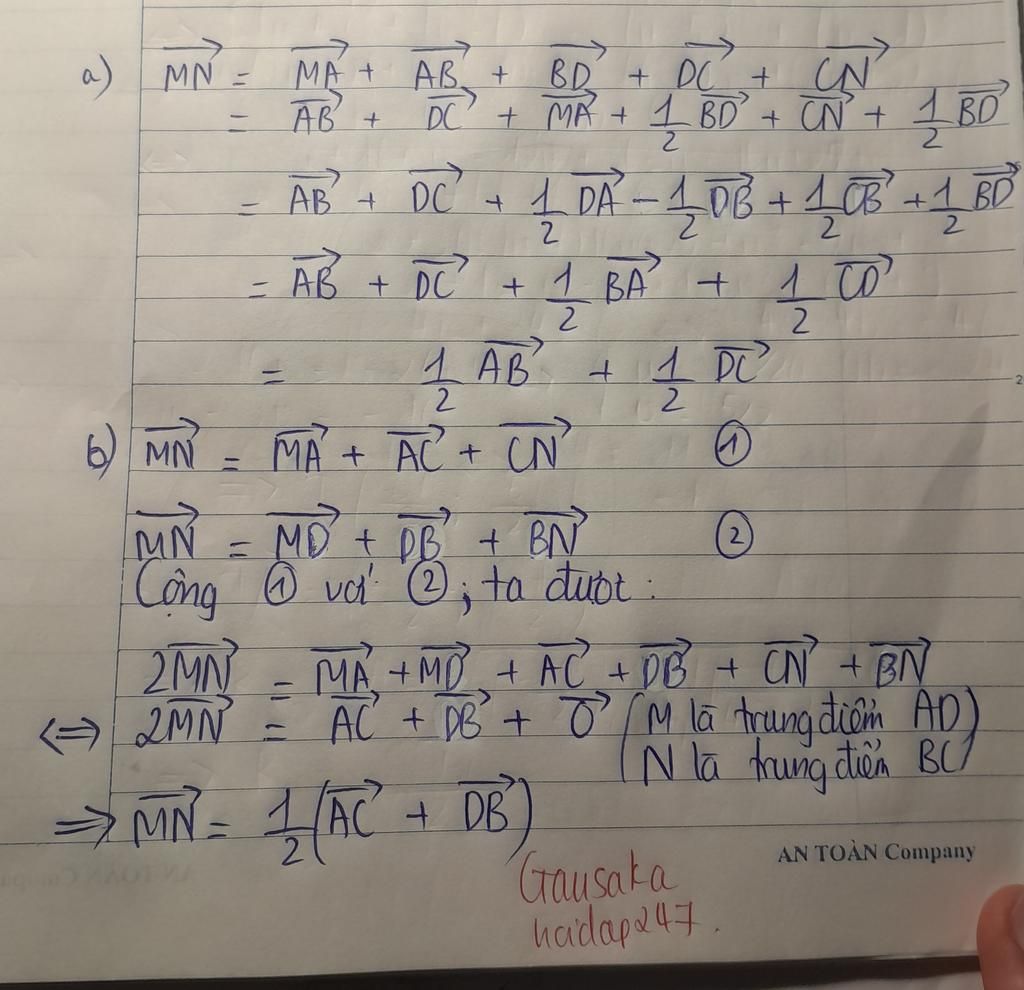 a) $\overrightarrow{MN} = \overrightarrow{MA} + \overrightarrow{AB} + \overrightarrow{BD} + \overrightarrow{DC} + \overrightarrow{CN}$
$= \overrightarrow{AB} + \overrightarrow{DC} + \overrightarrow{MA} + \frac{1}{2}\overrightarrow{BD} + \overrightarrow{CN} + \frac{1}{2}\overrightarrow{BD}$
$= \overrightarrow{AB} + \overrightarrow{DC} + \frac{1}{2}\overrightarrow{DA} - \frac{1}{2}\overrightarrow{DB} + \frac{1}{2}\overrightarrow{CB} + \frac{1}{2}\overrightarrow{BD}$
$= \overrightarrow{AB} + \overrightarrow{DC} + \frac{1}{2}\overrightarrow{BA} + \frac{1}{2}\overrightarrow{CD}$
$= \frac{1}{2}\overrightarrow{AB} + \frac{1}{2}\overrightarrow{DC}$
b) $\overrightarrow{MN} = \overrightarrow{MA} + \overrightarrow{AC} + \overrightarrow{CN}$ ①
$\overrightarrow{MN} = \overrightarrow{MD} + \overrightarrow{DB} + \overrightarrow{BN}$ ②
Cộng ① với ②; ta được:
$2\overrightarrow{MN} = \overrightarrow{MA} + \overrightarrow{MD} + \overrightarrow{AC} + \overrightarrow{DB} + \overrightarrow{CN} + \overrightarrow{BN}$
$\Leftrightarrow 2\overrightarrow{MN} = \overrightarrow{AC} + \overrightarrow{DB} + \overrightarrow{0}$ (M là trung điểm AD
N là trung điểm BC)
$\Rightarrow \overrightarrow{MN} = \frac{1}{2}(\overrightarrow{AC} + \overrightarrow{DB})$
AN TOÀN Company
Gausaka
hoidap247.